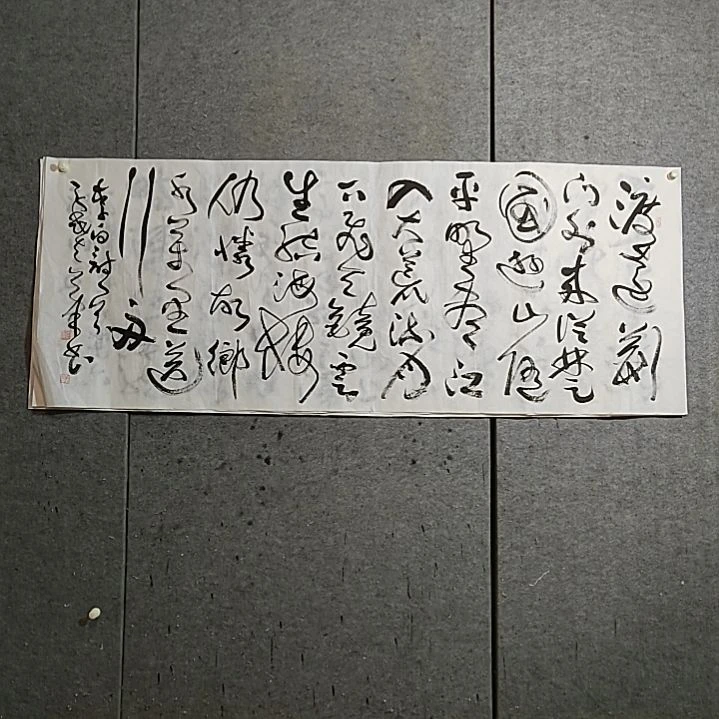 渡遠荊
門外來從楚
國遊山隨
平野盡江
入大荒流月
下飛天鏡雲
生結海樓
仍憐故鄉
水萬里送
行舟
李白詩一首
書